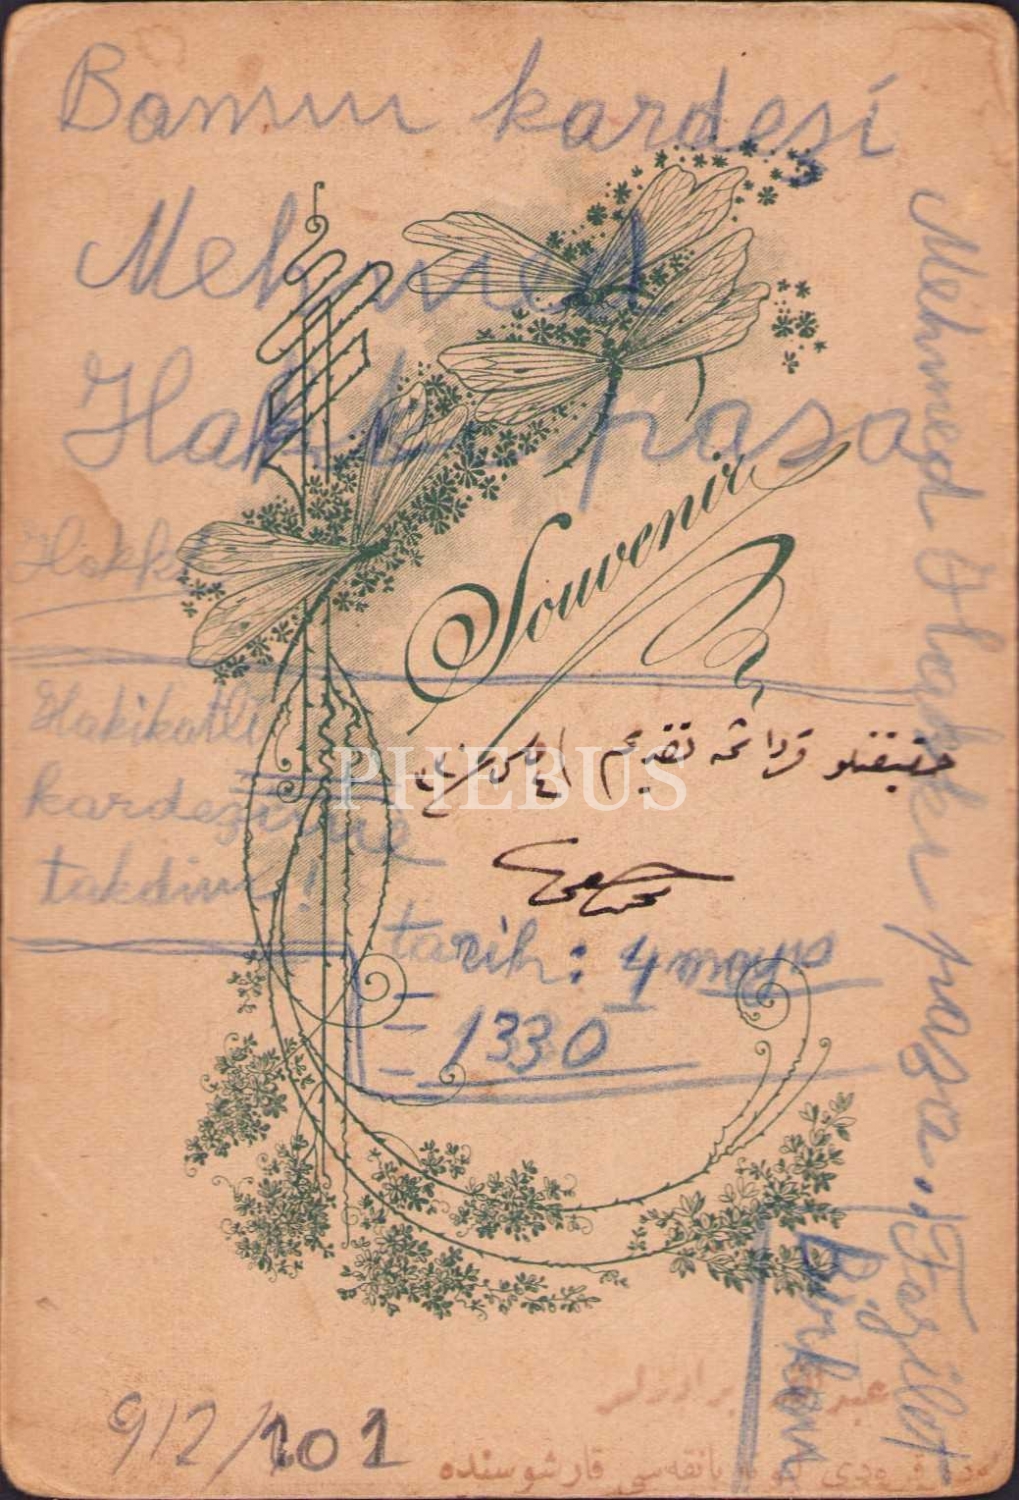 Bamın kardeşi
Mehmed
Hakkı paşa
Hakkı
Souvenir
Hakikatli
kardeşime
takdim!
حقیقتلو قرداشمه تقدیم
PHEBUS
tarih: 4 mayıs
1330
Mehmed Hakkı paşa..
(Fazilet
Birkan
912/101
برادرلر
بانقه‌سی قارشوسنده